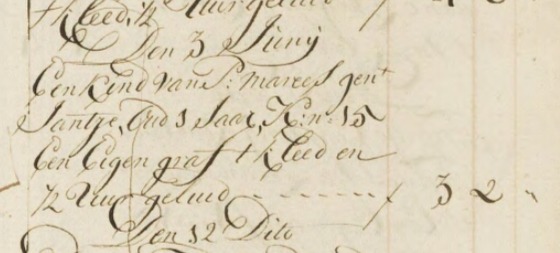 't Kleed, 1/2 Uur geluid f
Den 3 Juny
Een Kind van P: marees gent
Jantje, Oud 1 Jaar, K: n: 15
Een Eigen graf 't Kleed en
1/2 Uur geluid - - - - - - f 3 2 "
Den 12 Dito